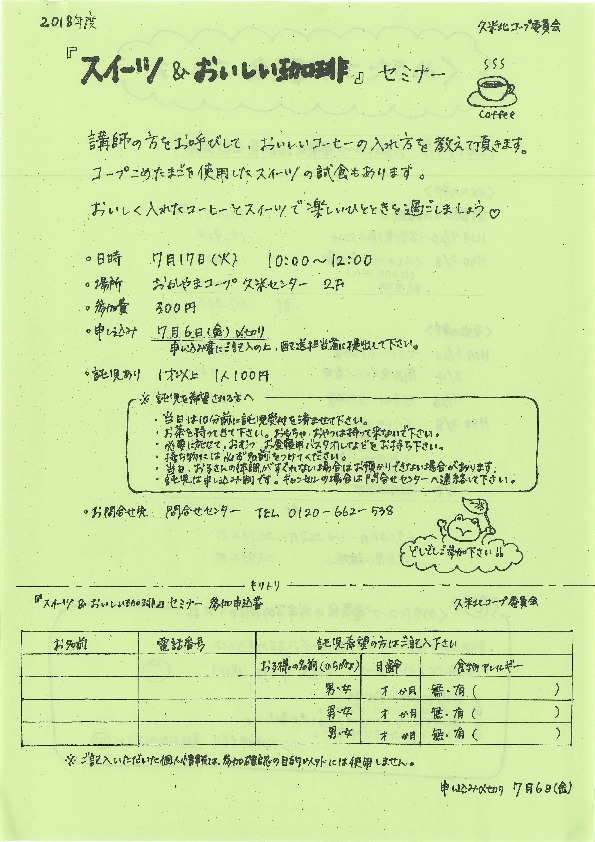 2018年度
久米北コープ委員会
『スイーツ & おいしい珈琲』 セミナー
coffee
講師の方をお呼びして、おいしいコーヒーの入れ方を教えて頂きます。
コープこめたまごを使用したスイーツの試食もあります。
おいしく入れたコーヒーとスイーツで楽しいひとときを過ごしましょう♡
。日時 7月17日(火) 10:00〜12:00
。場所 おかやまコープ 久米センター 2F
。参加費 300円
。申し込み 7月6日(金)〆切り
申し込み書にご記入の上、配送担当者に提出して下さい。
。託児あり 1才以上 1人100円
※ 託児を希望される方へ
・当日は10分前に託児受付を済ませて下さい。
・お茶を持って来て下さい。おもちゃ、おやつは持って来ないで下さい。
・必要に応じて、おむつ、お昼寝用バスタオルなどをお持ち下さい。
・持ち物には必ず名前をつけてください。
・当日、お子さんの体調がすぐれない場合はお預かりできない場合があります。
・託児は申し込み制です。キャンセルの場合は問合せセンターへ連絡して下さい。
。お問合せ先 問合せセンター TEL 0120-662-538
どしどしご参加下さい!!
キリトリ
『スイーツ & おいしい珈琲』 セミナー 参加申込書 久米北コープ委員会
お名前 電話番号 託児希望の方はご記入下さい
お子様の名前(ふりがな) 月齢 食物アレルギー
男・女 才 か月 無・有( )
男・女 才 か月 無・有( )
男・女 才 か月 無・有( )
※ ご記入いただいた個人情報は、参加確認の目的以外には使用しません。
申し込み〆切り 7月6日(金)